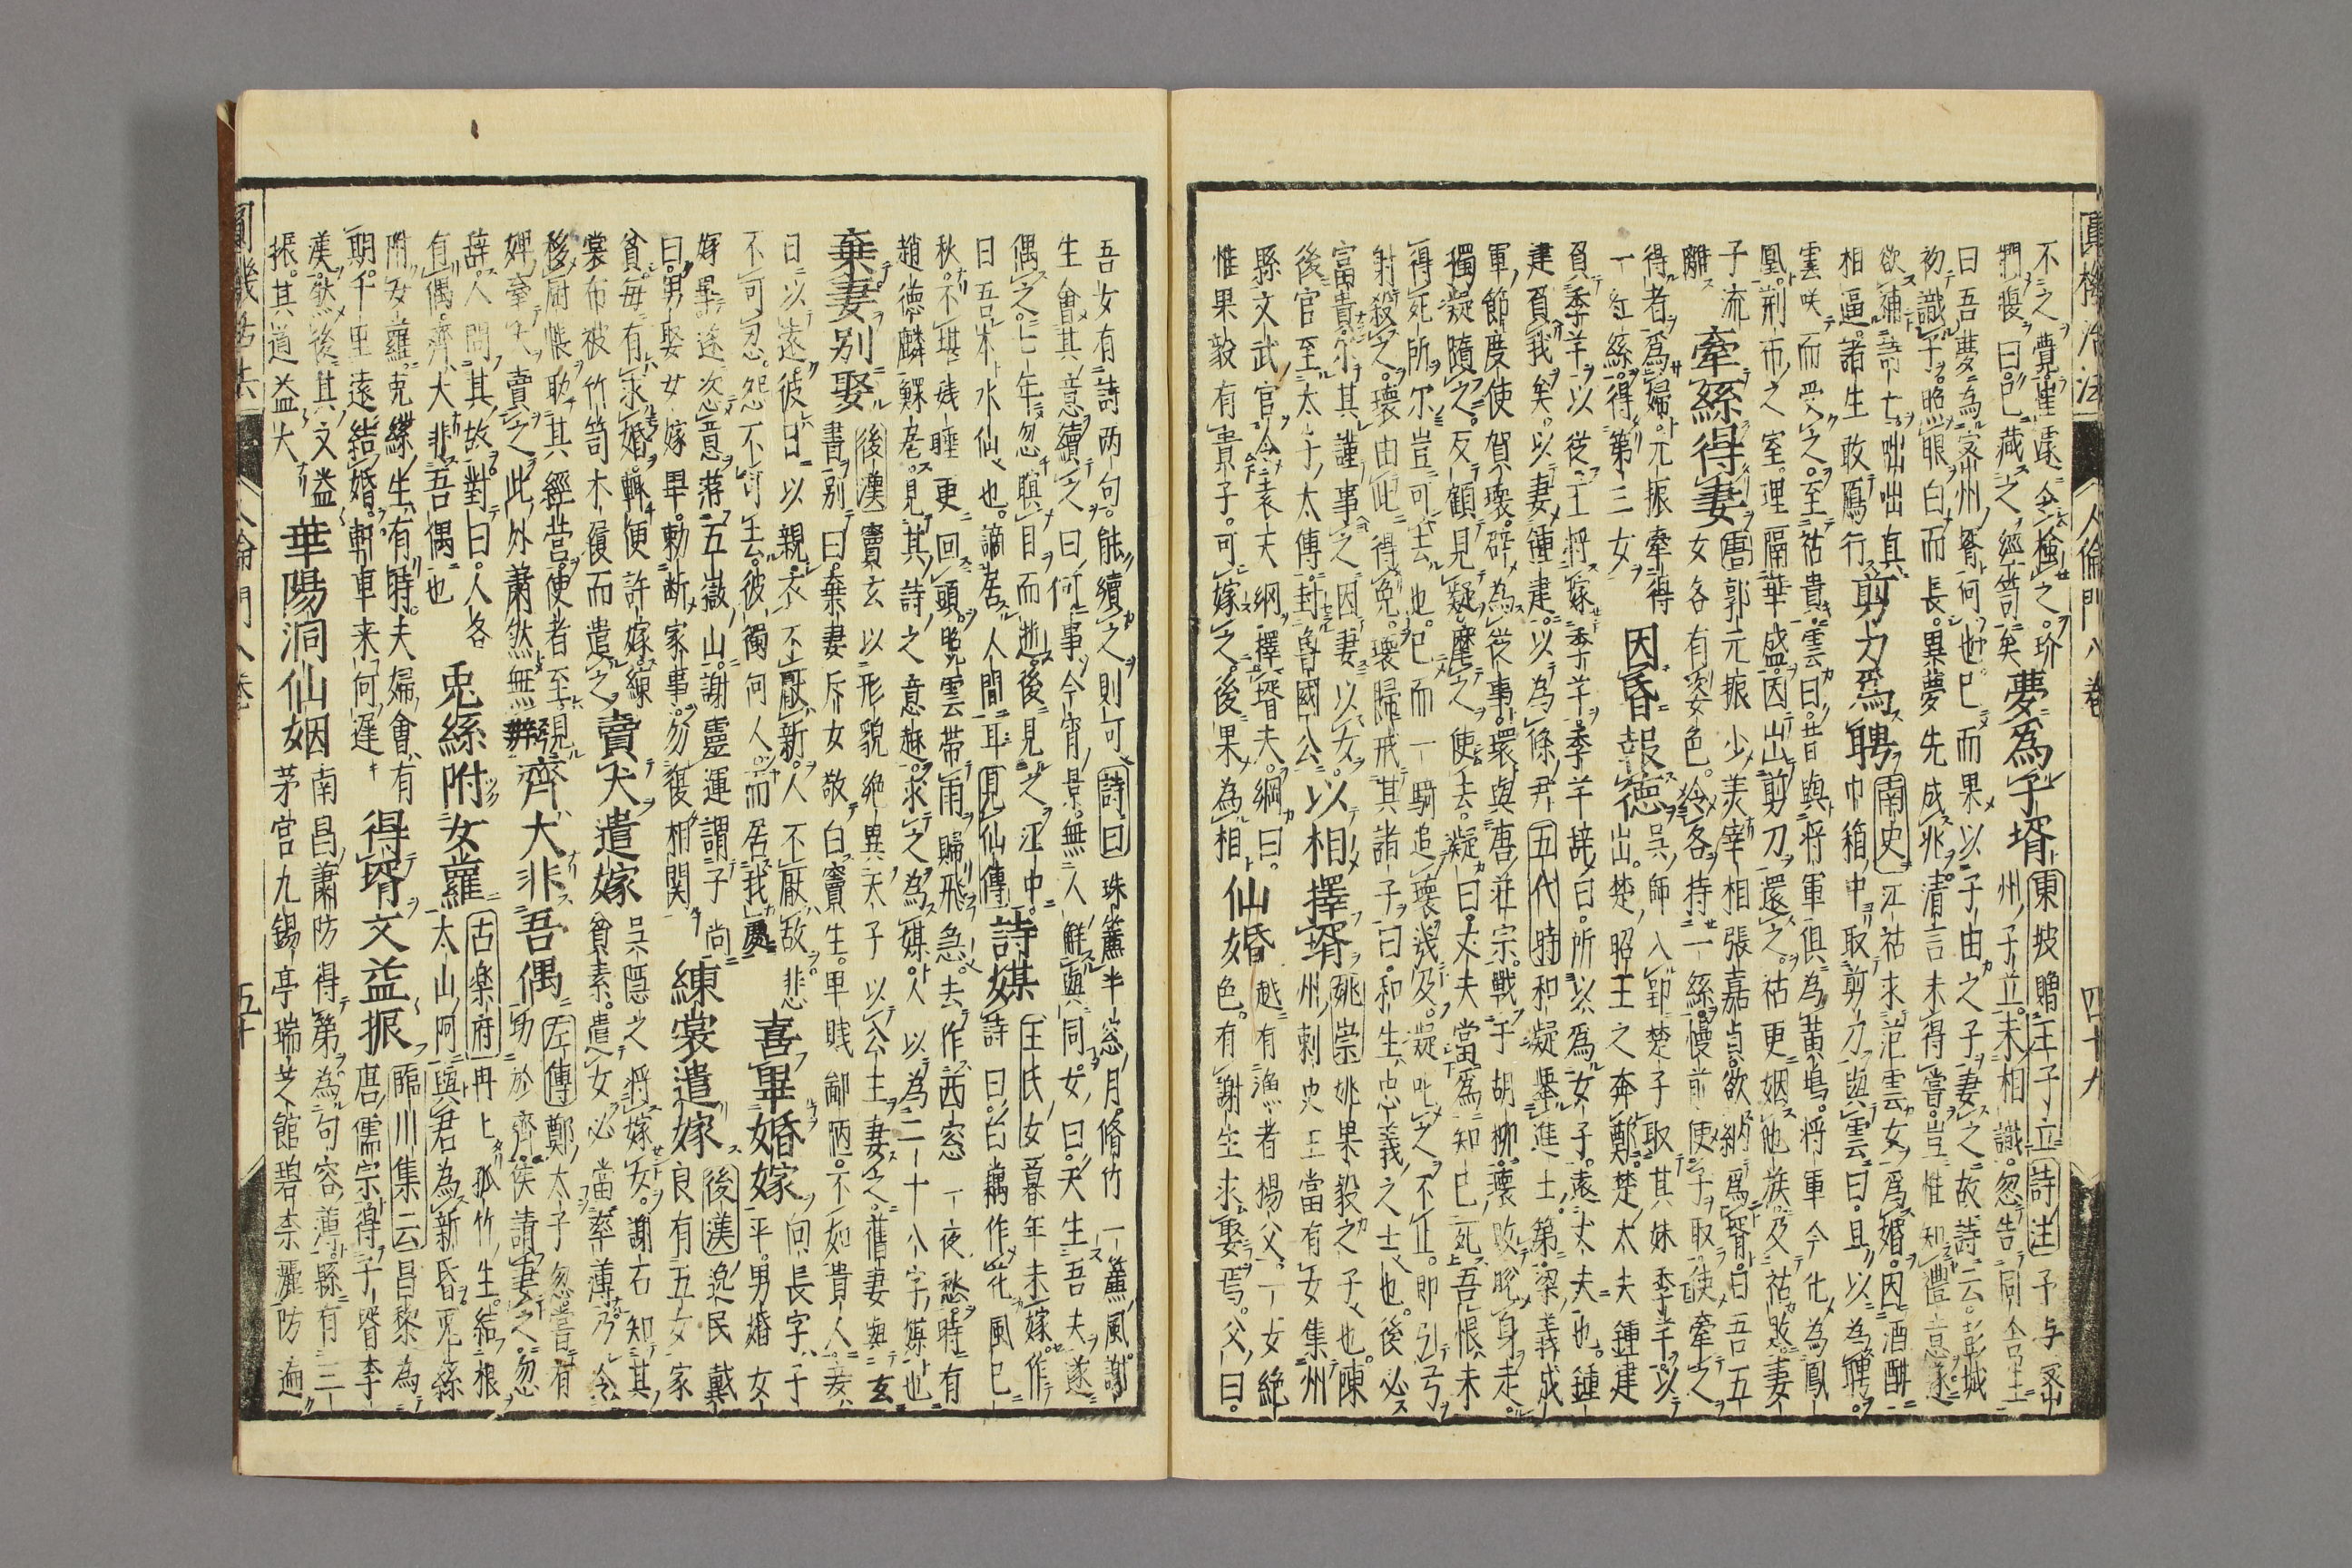 圓機活法 人倫門八卷 四十九
不之費崔還令檢之玠
郍復曰已藏之經笥矣
夢為子壻
東坡贈王子立詩注予与客
州子立未相識忽告同舍生
曰吾夢為客州壻何也已而果以子由之子妻之故詩云彭城
初識子照眼白而長異夢先成兆清言未得嘗豈惟知禮意遂
欲補詩亡咄咄真
相逼諸生敢鴈行
剪刀為聘
南史江祜求范雲女為婚因酒酣
巾箱中取剪刀與雲曰且以為聘
雲咲而受之至祜貴雲曰昔與將軍俱為黃鵠將軍今化為鳳
凰荊布之室理隔華盛因出剪刀還之祜更姻他族及祜敗妻
子流
離
牽絲得妻
唐郭元振少美宰相張嘉貞欲納為壻曰吾五
女各有姿色令各持一絲幔前使子取使牽之
得者為婦元振牽得
一紅絲得第三女
因昏報德
吳師入郢楚子取其妹季芊以
出楚昭王之奔鄭楚大夫鍾建
負季芊以從王將嫁季芊季芊辭曰所以為女子遠丈夫也鍾
建負我矣以妻鍾建以為條尹五代時和凝舉進士第梁義成
軍節度使賀瓌辟為從事瓌與唐莊宗戰于胡柳瓌敗脫身走
獨凝隨之反顧見凝麾之使去凝曰丈夫當為知已死吾恨未
得死所尔豈可去也已而一騎追瓌幾及凝叱之不止即引弓
射殺之瓌由此得免瓌歸戒其諸子曰和生忠義之士也後必
富貴尔其謹事之因妻以女
後官至太子太傅封魯國公
以相擇壻
姚崇姚果毅之子也陳
州刺史王當有女集州
縣文武官令袁夫綱擇壻夫綱曰
惟果毅有貴子可嫁之後果為相
仙婚
越有漁者楊父一女絕
色有謝生求娶焉父曰
吾女有詩両句能續之則可詩曰珠簾半窓月脩竹一簾風謝
生會其意續之曰何事今宵景無人觧與同女曰天生吾夫遂
偶之七年忽瞑目而逝後見之江中
曰吾本水仙也謫居人間耳見仙傳
詩媒
王氏女暮年未嫁作
詩曰白藕作花風已
秋不堪残睡更回頭晚雲帯雨歸飛急去作西窓一夜愁時有
趙徳麟鰥居見其詩之意趣求之為媒人以為二十八字媒也
棄妻别娶
後漢竇玄以形貌絶異天子以公主妻之舊妻與玄
書别曰棄妻斥女敬白竇生卑賎鄙陋不如貴人妾
日以遠彼日以親衣不厭新人不厭故悲
不可忍怨不可去彼獨何人而居我處
喜畢婚嫁
向長字子
平男婚女
嫁畢遂恣意落五嶽山謝靈運謂子尚
曰男娶女嫁畢勅断家事勿復相関
練裳遣嫁
後漢逸民戴
良有五女家
貧毎有求婚輙便許嫁練
裳布被竹笥木履而遣之
賣犬遣嫁
呉隠之將嫁女謝石知其
貧素遣女必當率薄乃令
移厨帳助其經営使者至見
婢牽犬賣之此外蕭然無辧
齊大非吾偶
左傳鄭太子忽嘗有
功於齊齊侯請妻之忽
辞人問其故對曰人各
有偶齊大非吾偶也
兎絲附女蘿
古楽府冉冉孤竹生結根
太山阿與君為新昏兎絲
附女蘿兎絲生有時夫婦會有
期千里遠結婚軒車来何遅
得壻文益振
臨川集云昌黎為
唐儒宗得子壻李
漢然後其文益
振其道益大
華陽洞仙姻
南昌蕭防得第為句容薄縣有三
茅宮九錫亭瑞芝館碧柰壠防遍
人倫門八卷 五十